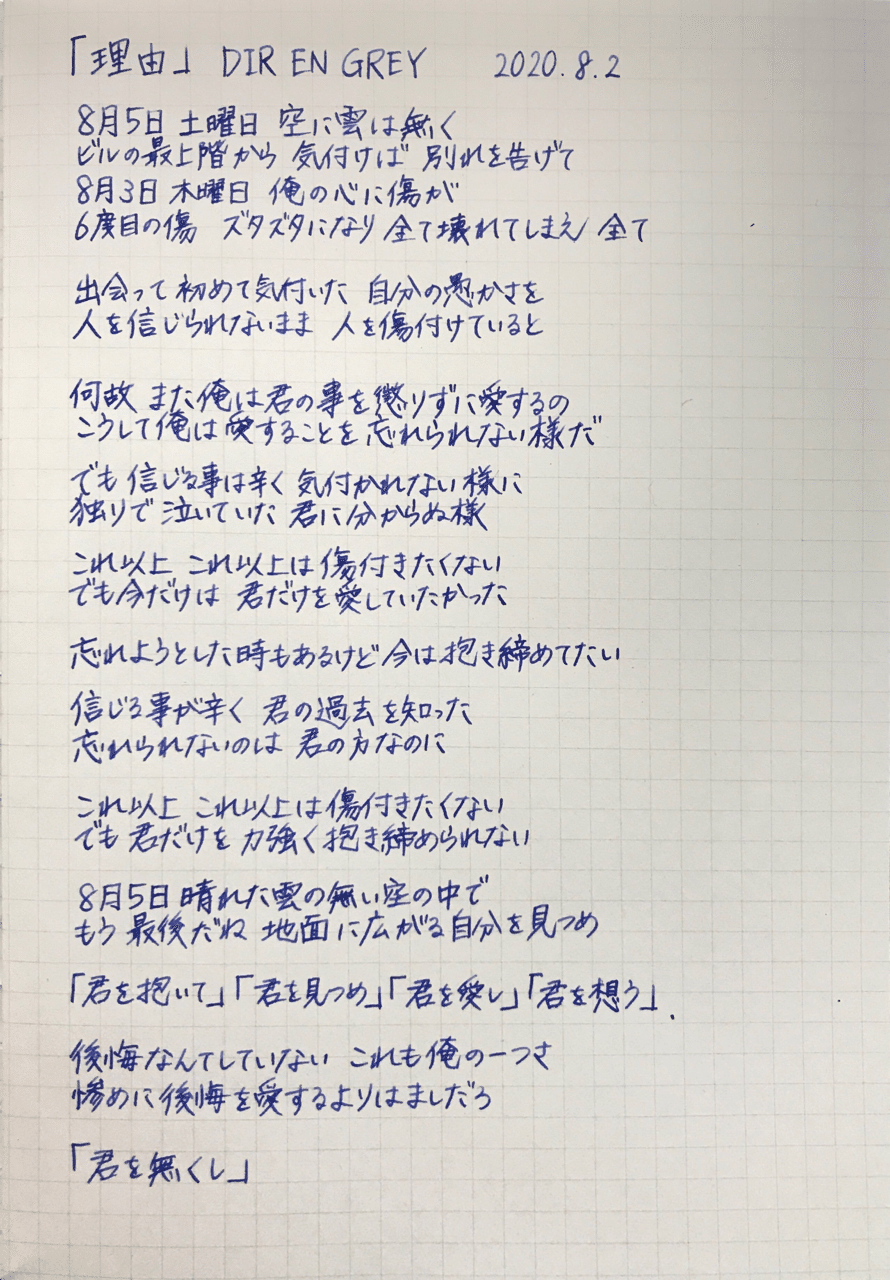 「理由」 DIR EN GREY 2020.8.2
8月5日 土曜日 空に雲は無く
ビルの最上階から 気付けば 別れを告げて
8月3日 木曜日 俺の心に傷が
6度目の傷 ズタズタになり 全て壊れてしまえ 全て
出会って初めて気付いた 自分の愚かさを
人を信じられないまま 人を傷付けていると
何故 また俺は君の事を懲りずに愛するの
こうして俺は愛することを忘れられない様だ
でも 信じる事は辛く 気付かれない様に
独りで泣いていた 君に分からぬ様
これ以上 これ以上は傷付きたくない
でも今だけは 君だけを愛していたかった
忘れようとした時もあるけど今は抱き締めてたい
信じる事が辛く 君の過去を知った
忘れられないのは 君の方なのに
これ以上 これ以上は傷付きたくない
でも 君だけを 力強く抱き締められない
8月5日 晴れた雲の無い空の中で
もう 最後だね 地面に広がる自分を見つめ
「君を抱いて」「君を見つめ」「君を愛し」「君を想う」.
後悔なんてしていない これも俺の一つさ
惨めに後悔を愛するよりはましだろ
「君を無くし」